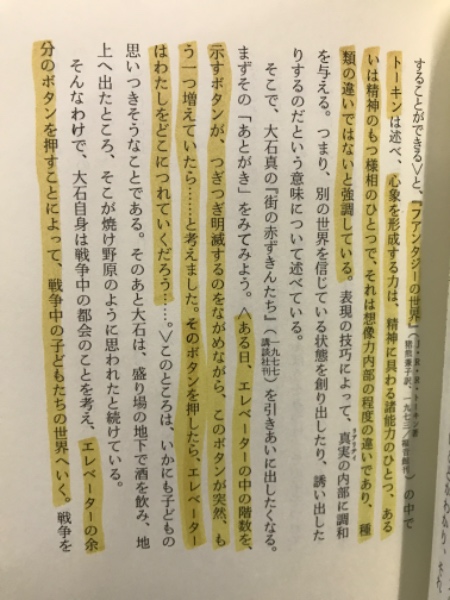 することができる〉と、『ファンタジーの世界』(J・R・R・トーキン著 猪熊葉子訳、一九七三/福音館刊)の中で
トーキンは述べ、心象を形成する力は、精神に具わる諸能力のひとつ、ある
いは精神のもつ様相のひとつで、それは想像力内部の程度の違いであり、種
類の違いではないと強調している。表現の技巧によって、真実の内部に調和
リアリティ
を与える。つまり、別の世界を信じている状態を創り出したり、誘い出した
りするのだという意味について述べている。
そこで、大石真の『街の赤ずきんたち』(一九七七/講談社刊)を引きあいに出したくなる。
まずその「あとがき」をみてみよう。〈ある日、エレベーターの中の階数を
示すボタンが、つぎつぎ明滅するのをながめながら、このボタンが突然、も
う一つ増えていたら……と考えました。そのボタンを押したら、エレベーター
はわたしをどこにつれていくだろう……。〉このところは、いかにも子どもの
思いつきそうなことである。そのあと大石は、盛り場の地下で酒を飲み、地
上へ出たところ、そこが焼け野原のように思われたと続けている。
そんなわけで、大石自身は戦争中の都会のことを考え、エレベーターの余
分のボタンを押すことによって、戦争中の子どもたちの世界へいく。戦争を